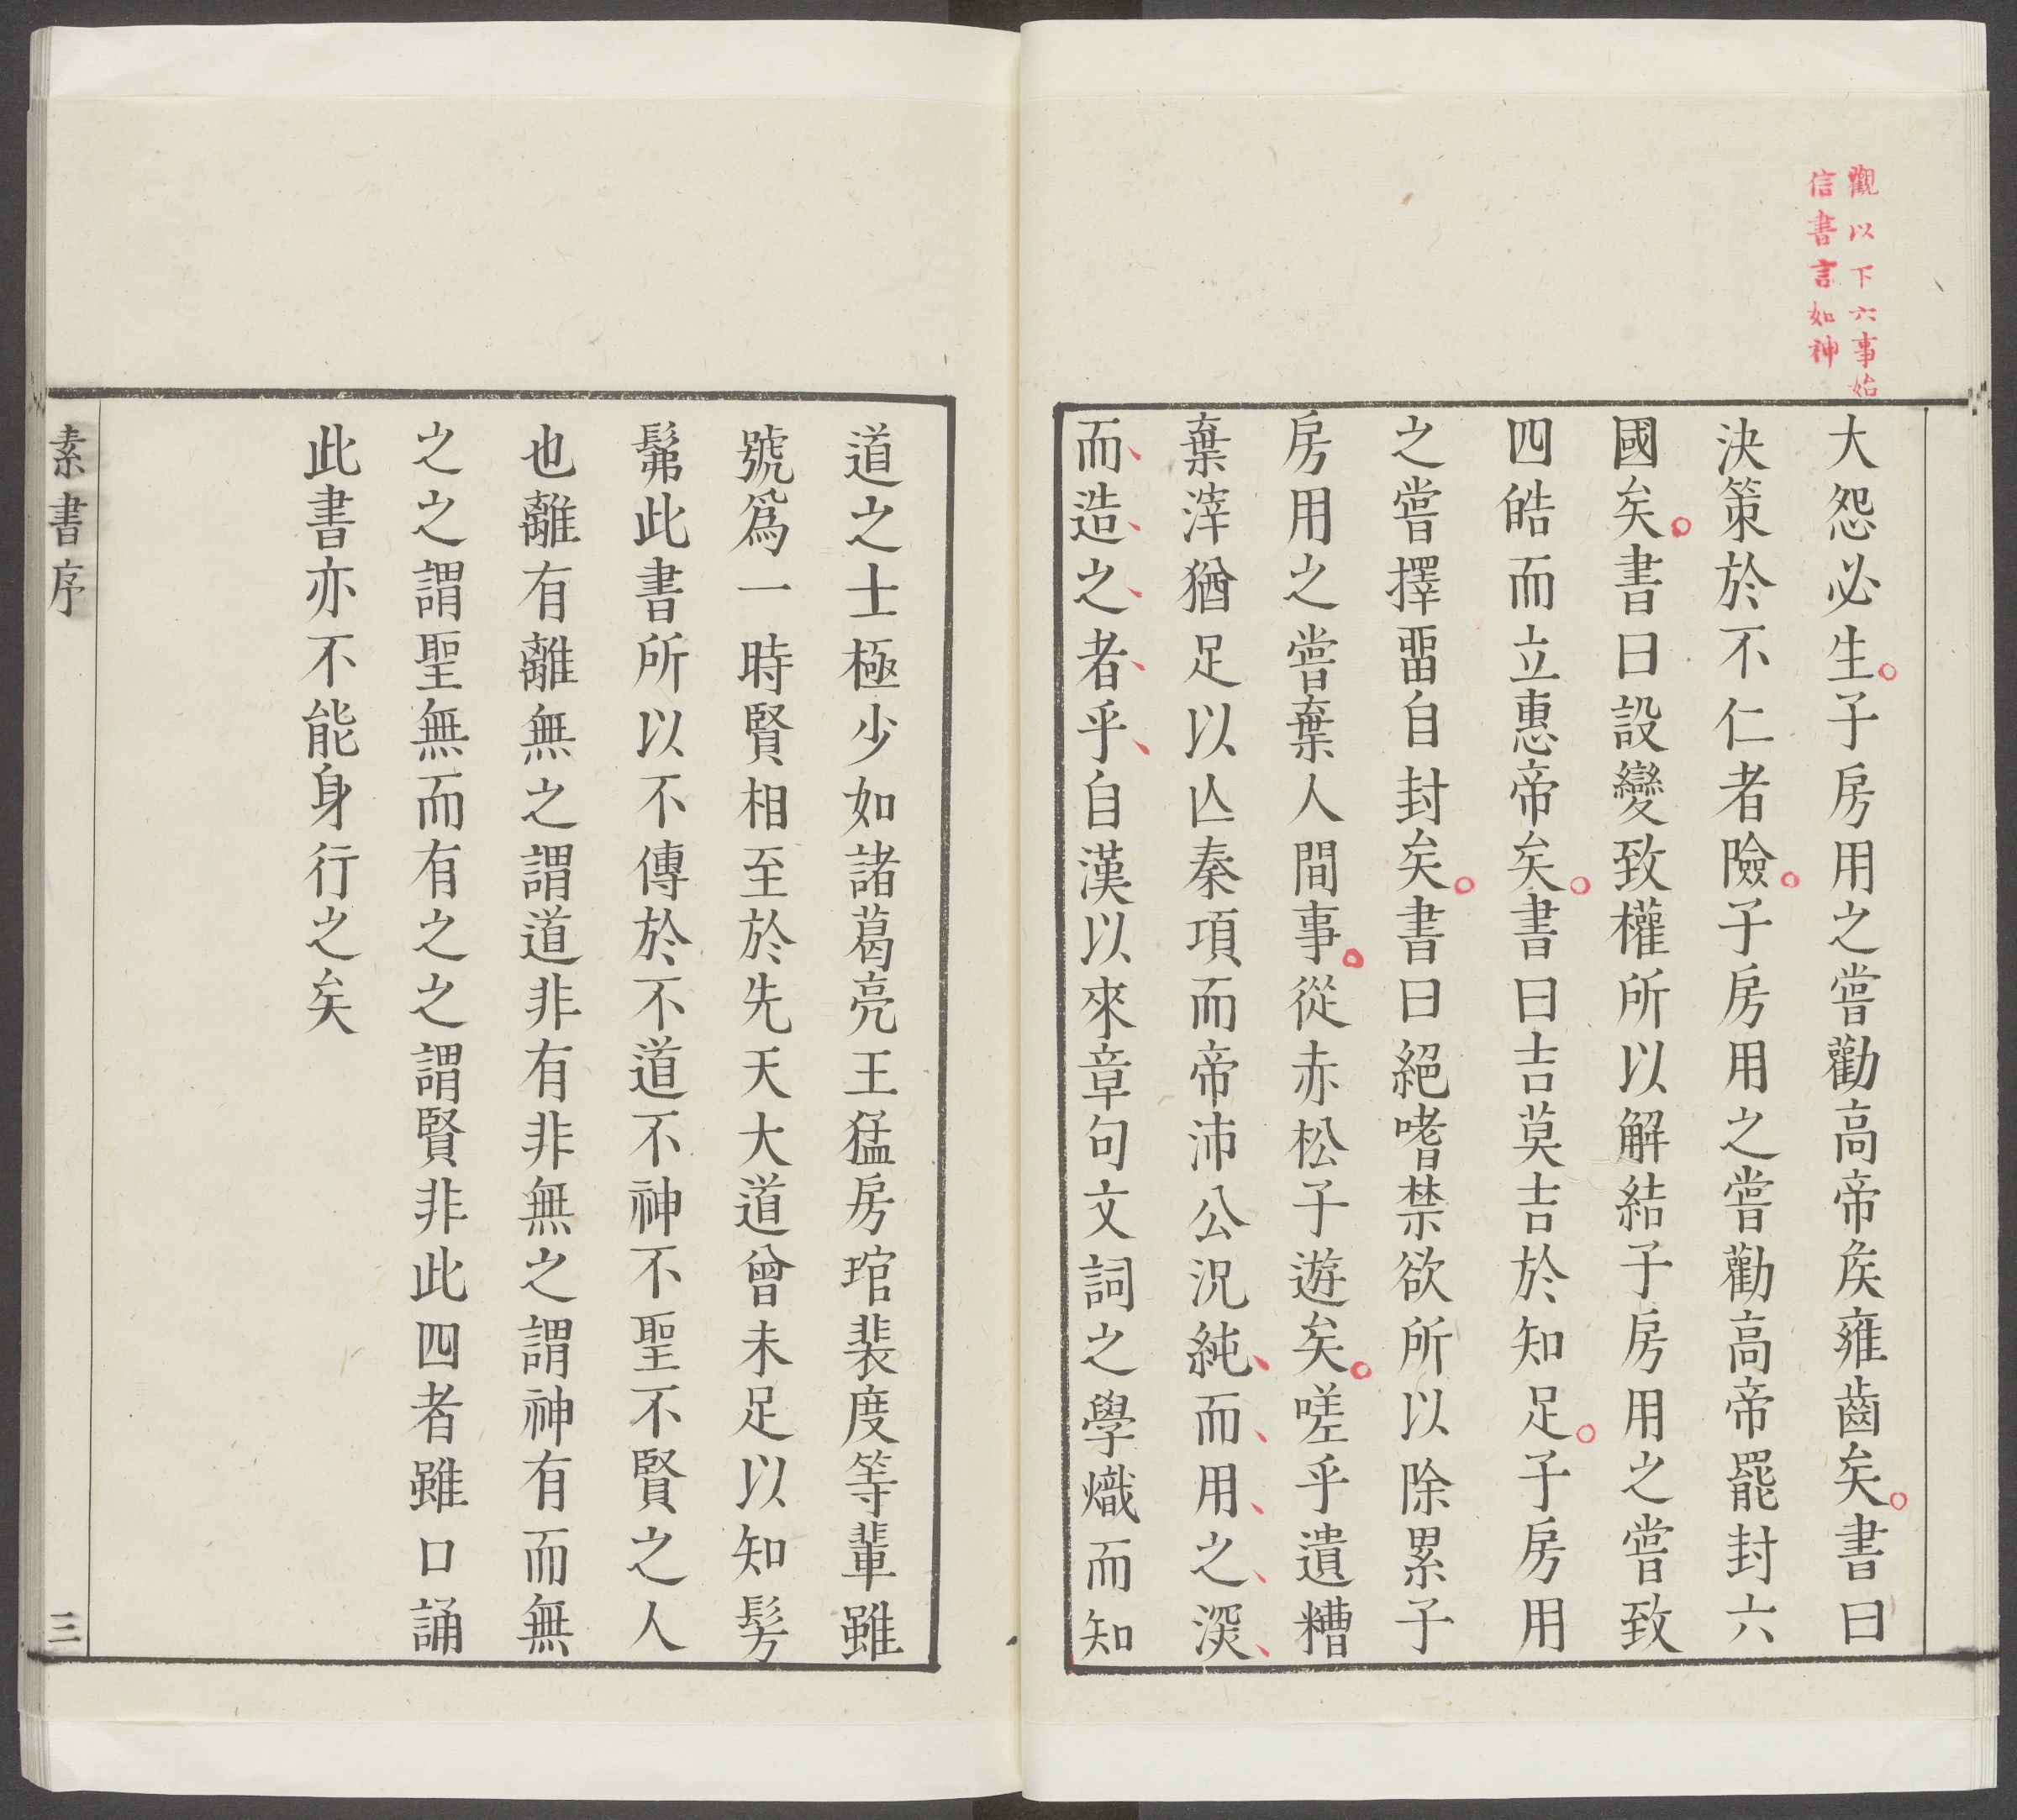 觀以下六事始
信書言如神
大怨必生子房用之嘗勸高帝矦雍齒矣書曰
決策於不仁者險子房用之嘗勸高帝罷封六
國矣書曰設變致權所以解結子房用之嘗致
四皓而立惠帝矣書曰吉莫吉於知足子房用
之嘗擇畱自封矣書曰絕嗜禁欲所以除累子
房用之嘗棄人間事從赤松子遊矣嗟乎遺糟
棄滓猶足以亾秦項而帝沛公況純而用之深
而造之者乎自漢以來章句文詞之學熾而知
道之士極少如諸葛亮王猛房琯裴度等輩雖
號爲一時賢相至於先天大道曾未足以知髣
髴此書所以不傳於不道不神不聖不賢之人
也離有離無之謂道非有非無之謂神有而無
之之謂聖無而有之之謂賢非此四者雖口誦
此書亦不能身行之矣
素書序
三